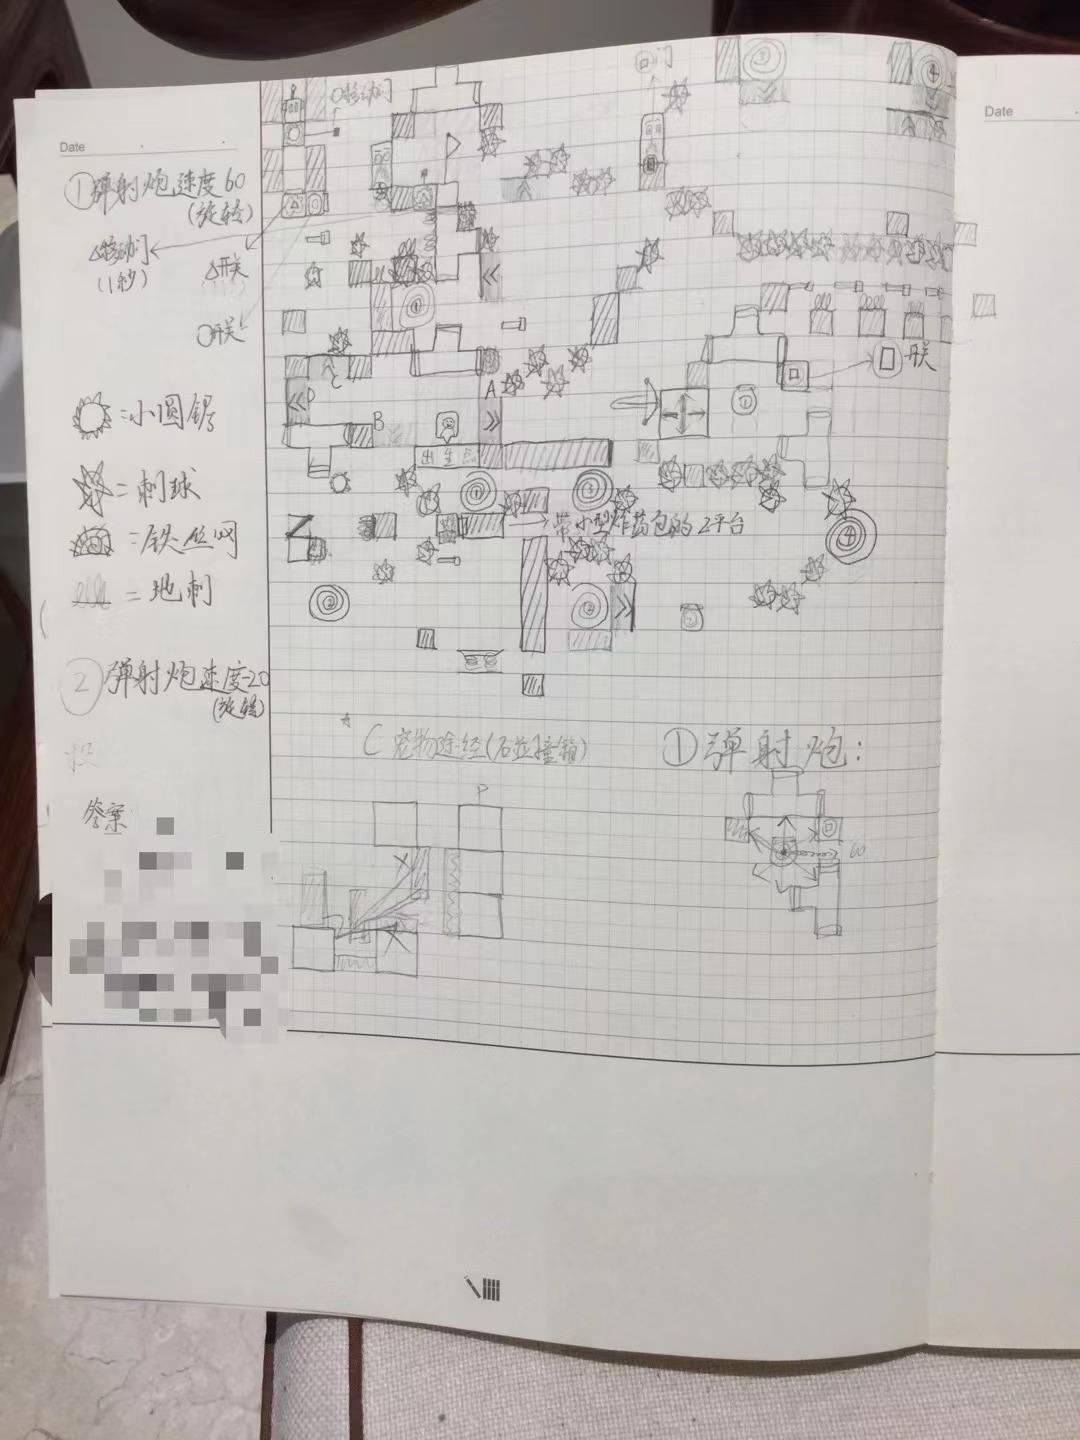 Date
Date
①弹射炮速度60
(旋转)
△移动门
(1秒)
△开关
○开关
○移动门
口门
口开关
=小圆锯
=刺球
=铁丝网
=地刺
②弹射炮速度-20
(旋转)
答案
A
B
C
D
出生点
①
①
②
②
③
④
④
带小型炸药包的Z平台
C 宠物途经(石拉撞箱)
P
①弹射炮:
60